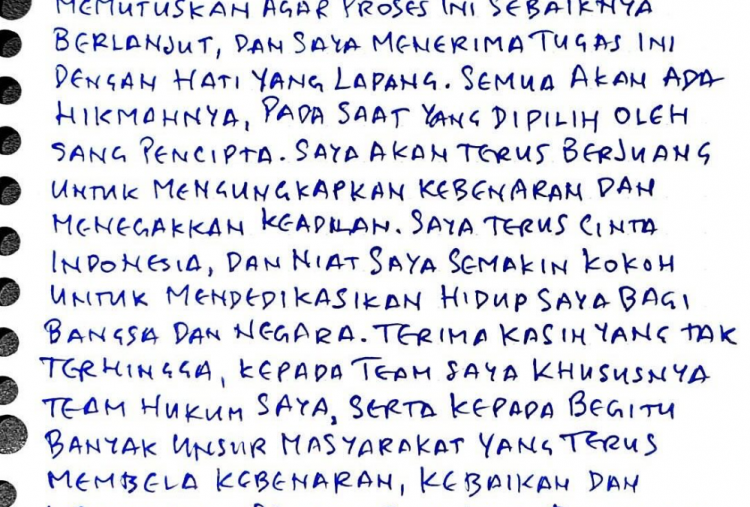 MEMUTUSKAN AGAR PROSES INI SEBAIKNYA
BERLANJUT, DAN SAYA MENERIMA TUGAS INI
DENGAN HATI YANG LAPANG. SEMUA AKAN ADA
HIKMAHNYA, PADA SAAT YANG DIPILIH OLEH
SANG PENCIPTA. SAYA AKAN TERUS BERJUANG
UNTUK MENGUNGKAPKAN KEBENARAN DAN
MENEGAKKAN KEADILAN. SAYA TERUS CINTA
INDONESIA, DAN NIAT SAYA SEMAKIN KOKOH
UNTUK MENDEDIKASIKAN HIDUP SAYA BAGI
BANGSA DAN NEGARA. TERIMA KASIH YANG TAK
TERHINGGA, KEPADA TEAM SAYA KHUSUSNYA
TEAM HUKUM SAYA, SERTA KEPADA BEGITU
BANYAK UNSUR MASYARAKAT YANG TERUS
MEMBELA KEBENARAN, KEBAIKAN DAN